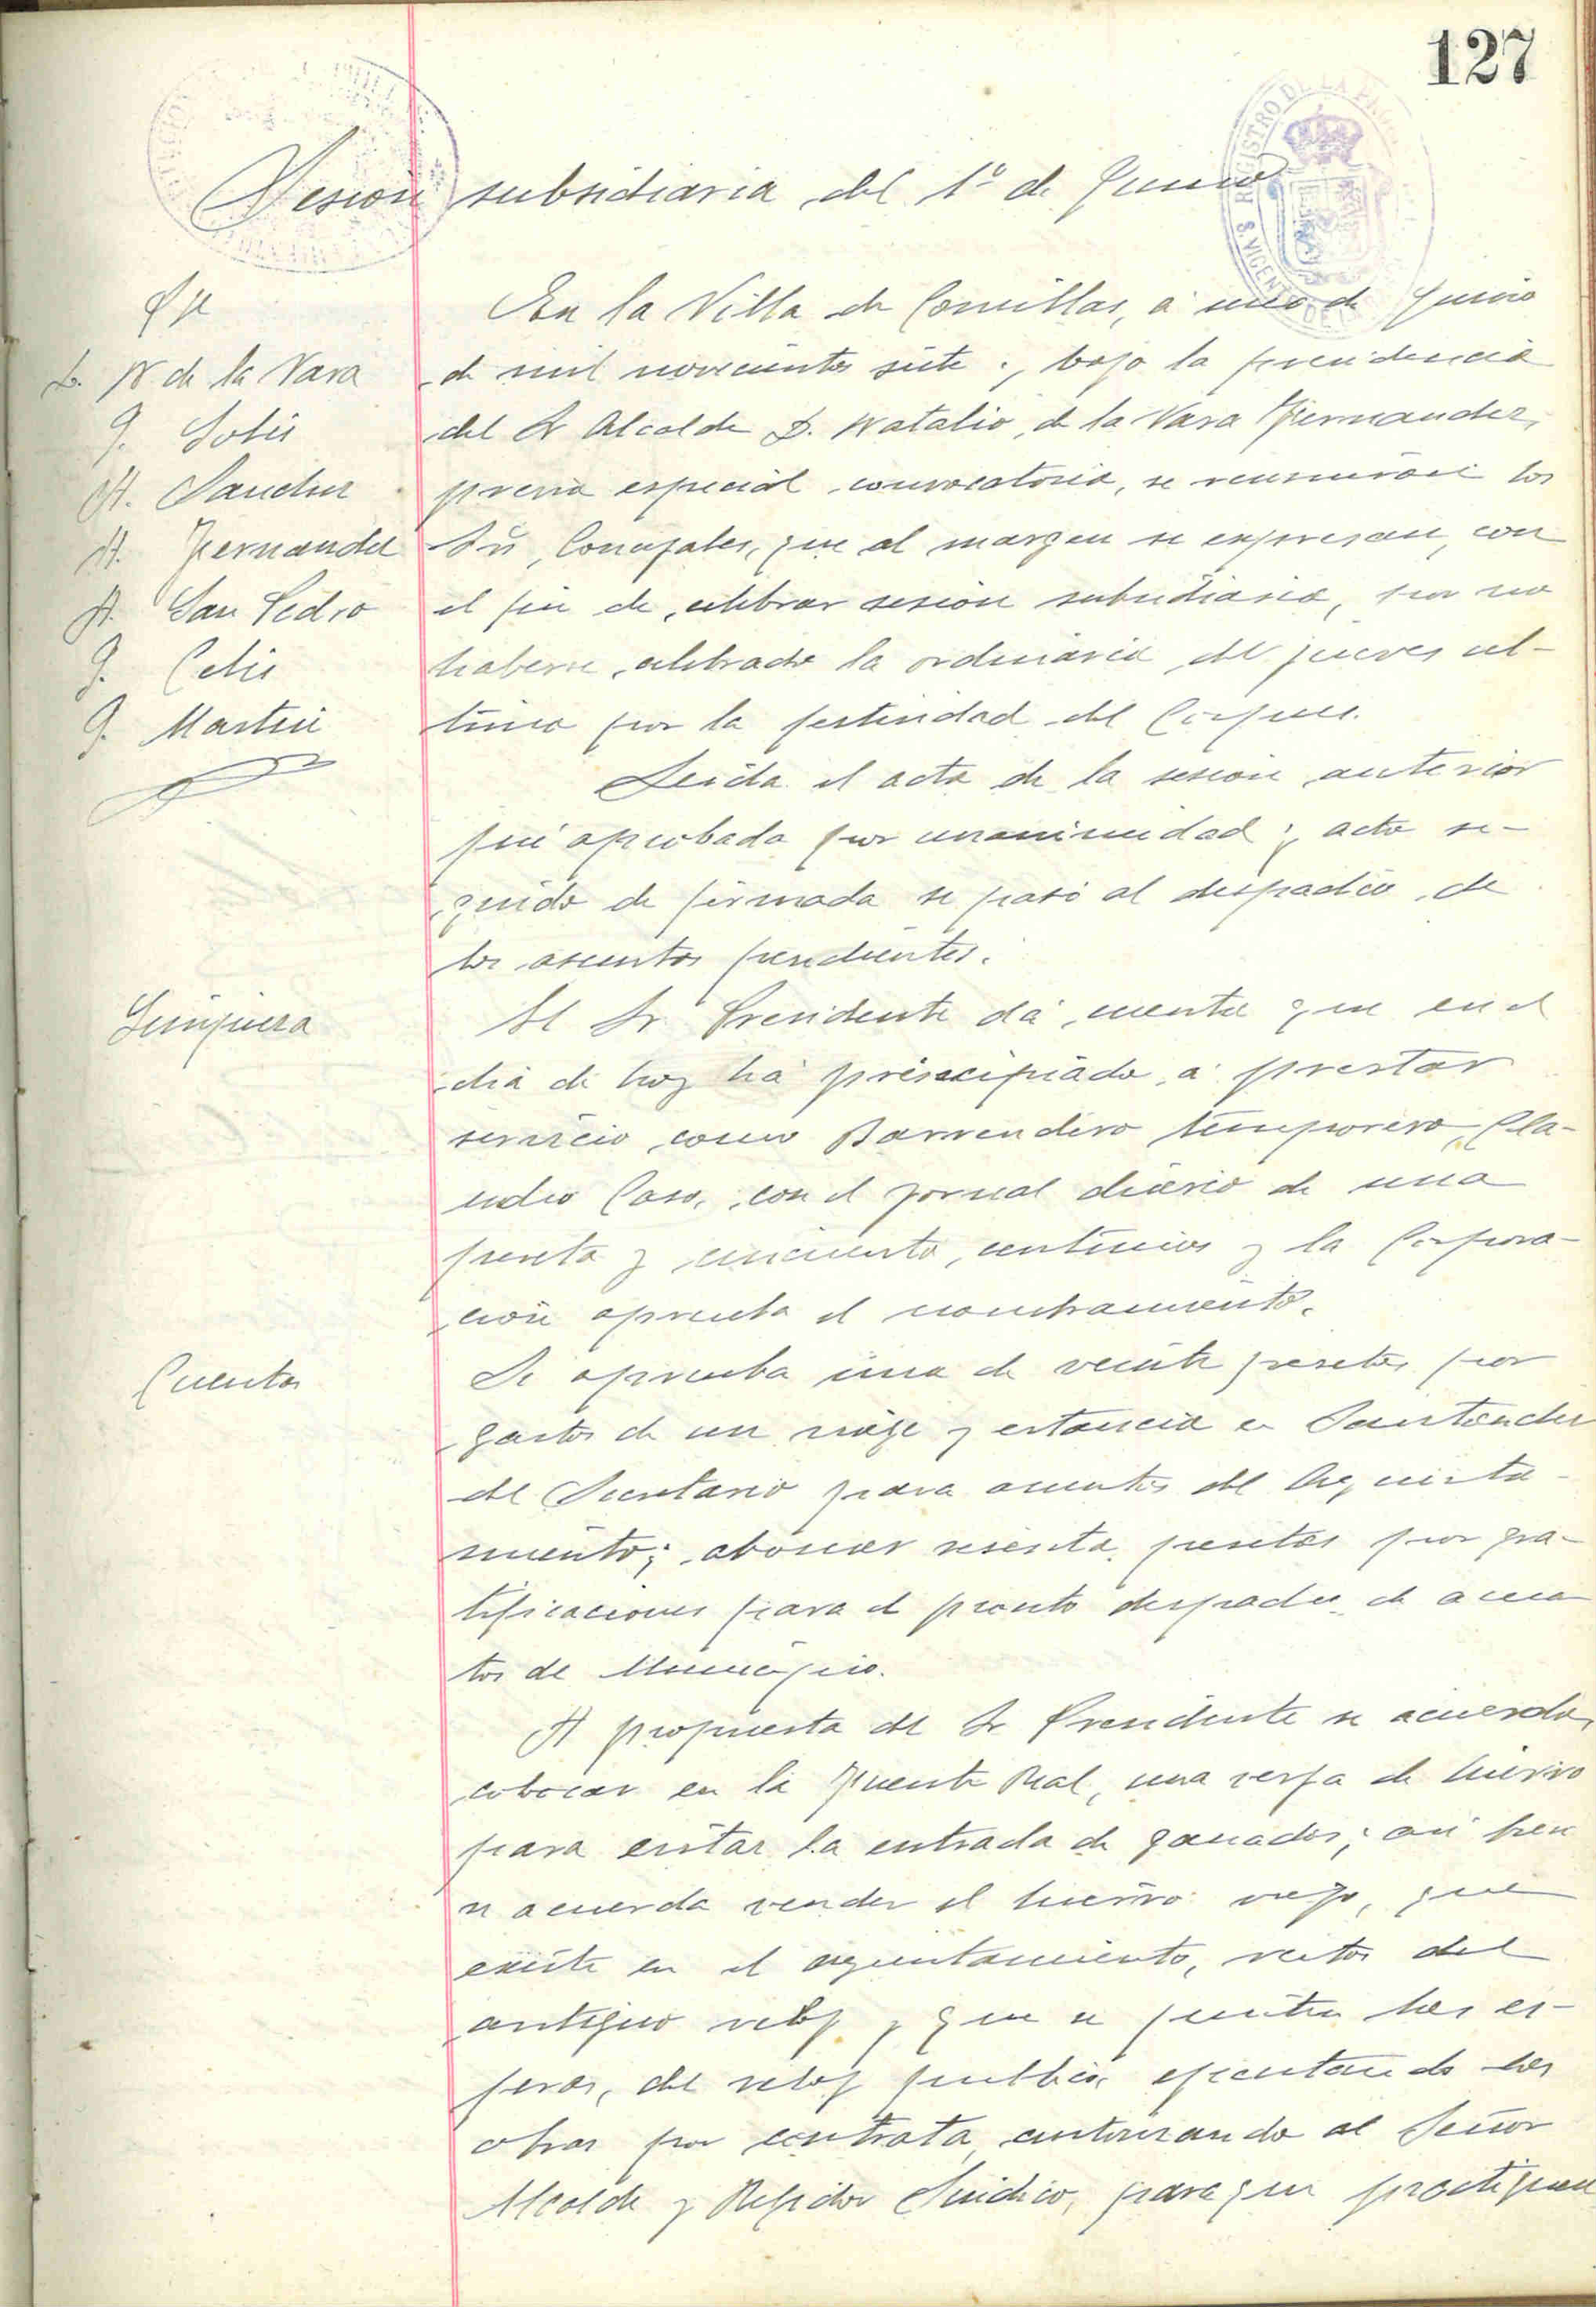 127
Sesión subsidiaria del 1º de Junio
D. N de la Vara
J. Solis
M. Sanchez
A. Fernandez
A. San Pedro
J. Celis
J. Martin
En la Villa de Comillas, á uno de Junio
de mil novecientos siete, bajo la presidencia
del Sr Alcalde D. Natalio de la Vara Fernandez,
previa especial convocatoria, se reunieron los
Srs Concejales, que al margen se expresan, con
el fin de celebrar sesion subsidiaria, por no
haberse celebrado la ordinaria del jueves ul-
timo por la festividad del Corpus.
Leida el acta de la sesion anterior
fué aprobada por unanimidad y acto se-
guido de firmada se pasó al despacho de
los asuntos pendientes.
Limpieza
El Sr Presidente dá cuenta que en el
dia de hoy há principiado á prestar
servicio como Barrendero temporero, Cla-
udio Caso, con el jornal diario de una
peseta y cincuenta centimos y la Corpora-
ción aprueba el nombramiento.
Cuentas
Se aprueba una de veinte pesetas por
gastos de un viaje y estancia en Santander
del Secretario para asuntos del Ayunta-
miento; abonar sesenta pesetas por gra-
tificaciones para el pronto despacho de asun
tos de Municipio.
A propuesta del Sr Presidente se acuerda
colocar en la Fuente Real, una verja de hierro
para evitar la entrada de ganados; asi bien
se acuerda vender el hierro viejo, que
existe en el ayuntamiento, restos del
antiguo reloj y que se pinten las es-
feras, del reloj publico, ejecutando las
obras por contrata, autorizando al Señor
Alcalde y Regidor Sindico, para que practiquen